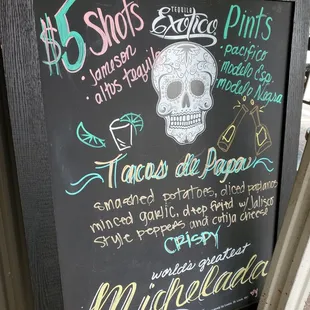 $5 Shots
• Jameson
• altos tequila
TEQUILA
Exotico
Pints
• pacifico
• modelo Esp.
• modelo Negra
Tacos de Papa
smashed potatoes, diced poblanos
minced garlic, deep fried w/ Jalisco
style peppers and cotija cheese
CRISPY
"world's greatest
Michelada